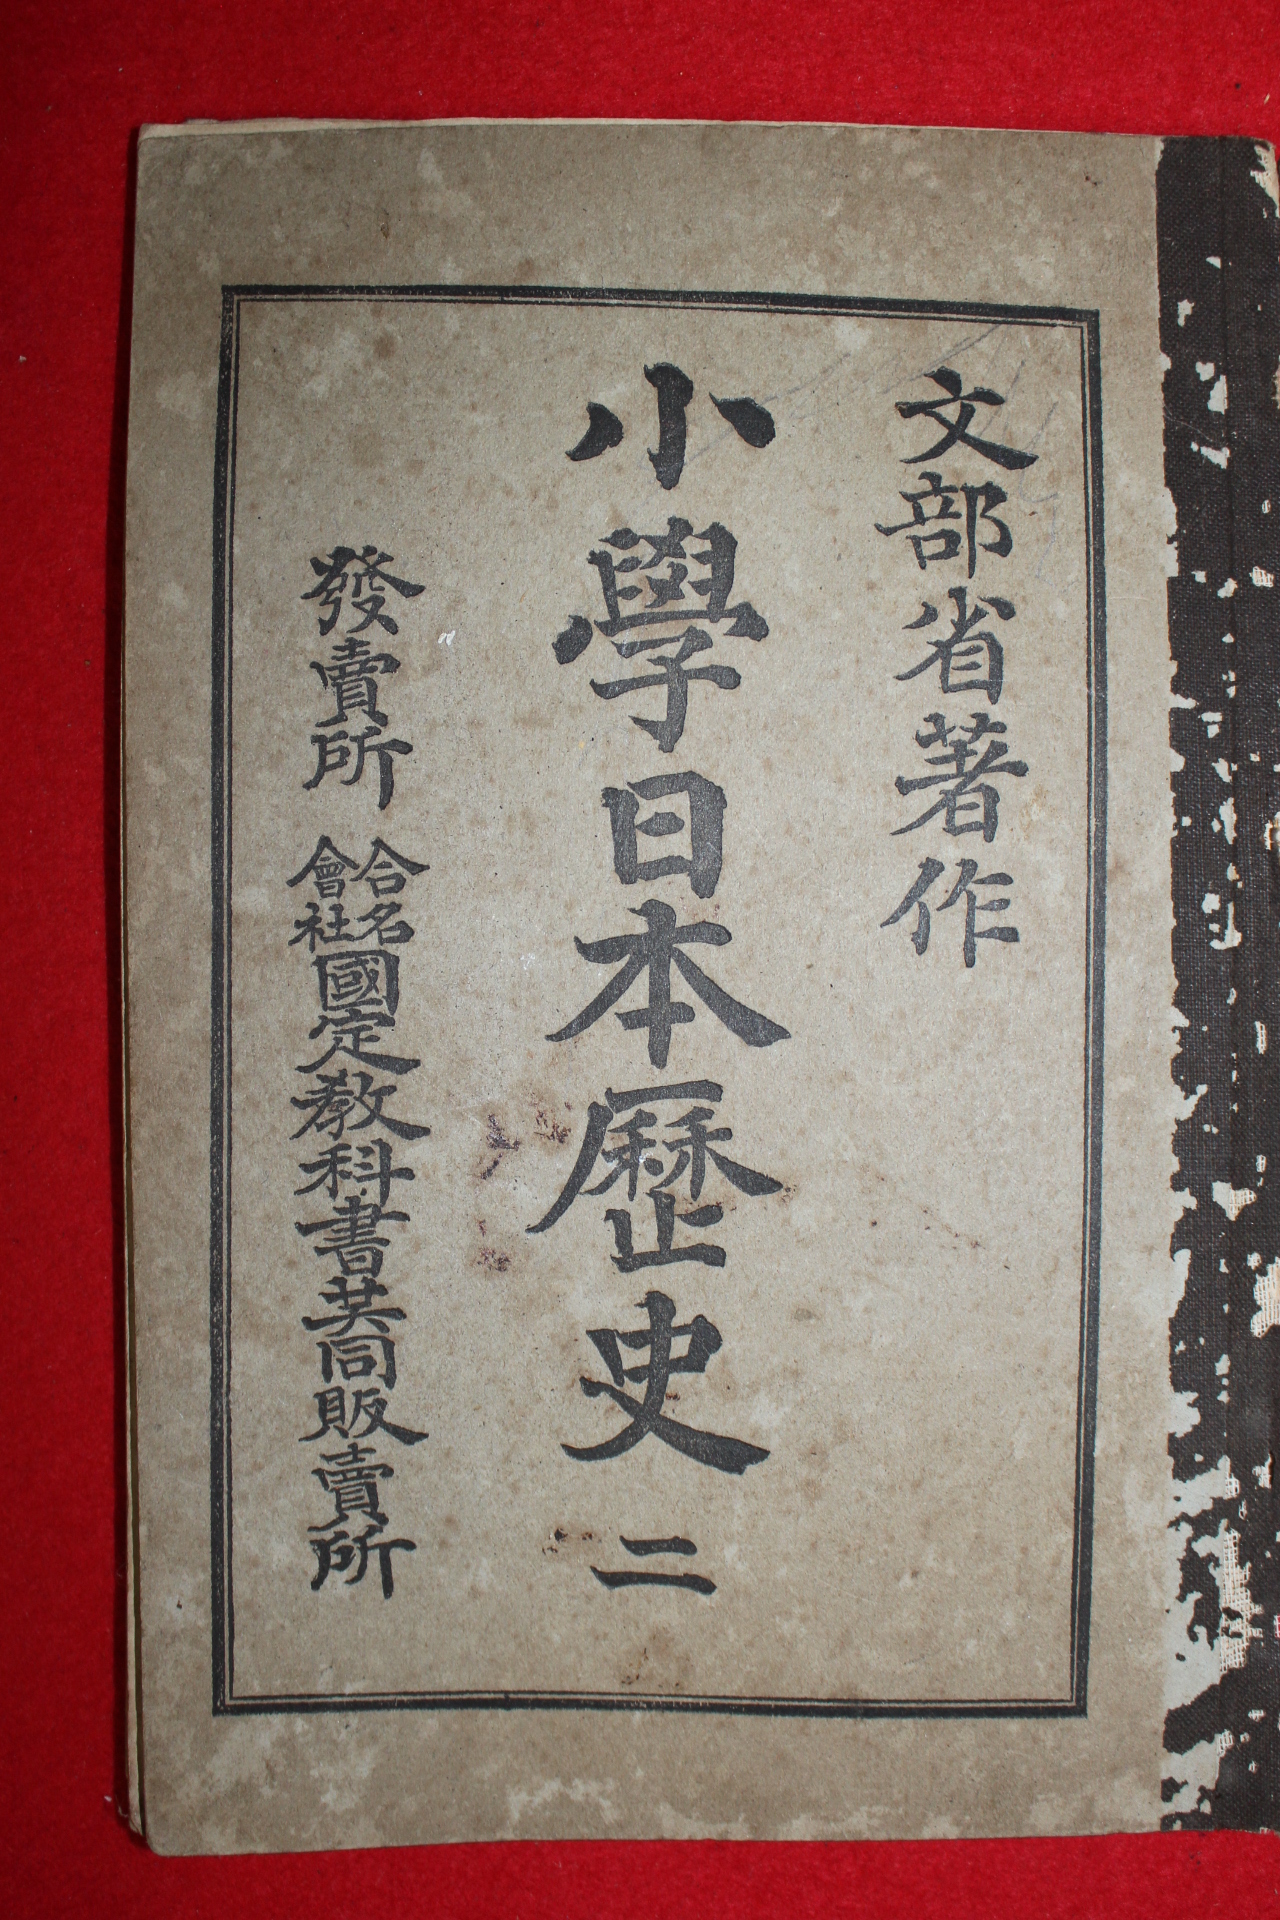 文部省著作
小學日本歷史 二
發賣所 合名會社 國定教科書共同販賣所